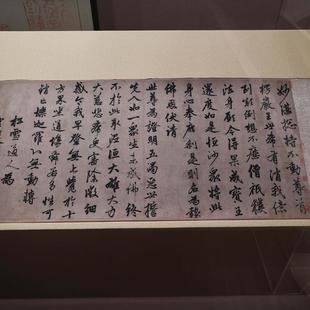 妙湛捴持不動尊首
楞嚴王世希有消我億
劫顛倒想不歷僧祇獲
法身願今得果成寶王
還度如是恒沙眾將此
身心奉塵剎是則名為報
佛恩伏請
世尊為證明五濁惡世誓
先入如一眾生未成佛終
不於此取泥洹大雄大力
大慈悲希更審除微細
惑令我早登無上覺於十
方界坐道場舜若多性可
消亡爍迦羅心無動轉
松雪道人為